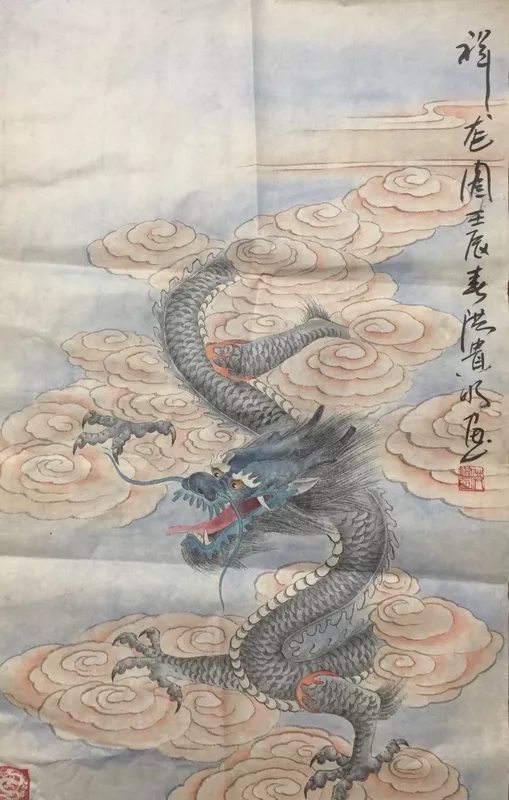 祥龙图壬辰春洪貴明画